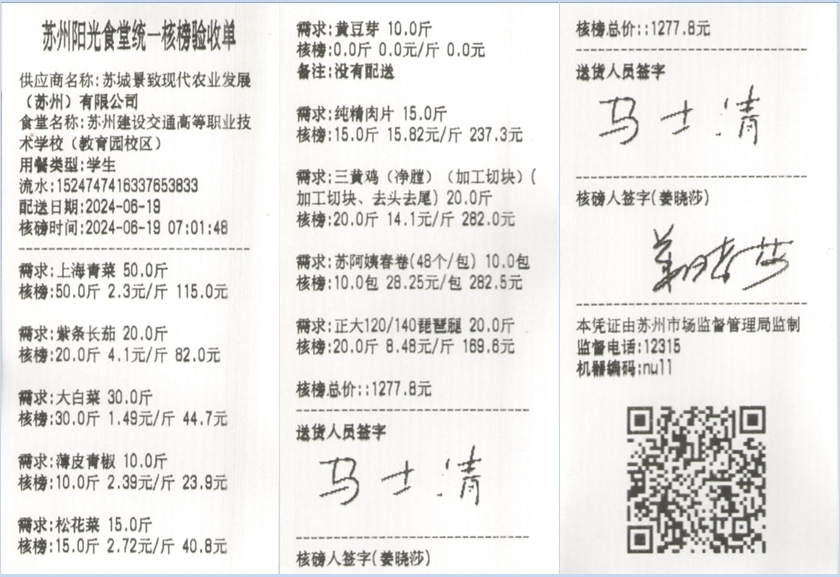 苏州阳光食堂统一核榜验收单
供应商名称:苏城景致现代农业发展
（苏州）有限公司
食堂名称:苏州建设交通高等职业技
术学校（教育园校区）
用餐类型:学生
流水:1524747416337653833
配送日期:2024-06-19
核磅时间:2024-06-19 07:01:48
需求:上海青菜 50.0斤
核榜:50.0斤 2.3元/斤 115.0元
需求:紫条长茄 20.0斤
核榜:20.0斤 4.1元/斤 82.0元
需求:大白菜 30.0斤
核榜:30.0斤 1.49元/斤 44.7元
需求:薄皮青椒 10.0斤
核榜:10.0斤 2.39元/斤 23.9元
需求:松花菜 15.0斤
核榜:15.0斤 2.72元/斤 40.8元
需求:黄豆芽 10.0斤
核榜:0.0斤 0.0元/斤 0.0元
备注:没有配送
需求:纯精肉片 15.0斤
核榜:15.0斤 15.82元/斤 237.3元
需求:三黄鸡（净膛）（加工切块）(
加工切块、去头去尾) 20.0斤
核榜:20.0斤 14.1元/斤 282.0元
需求:苏阿姨春卷(48个/包) 10.0包
核榜:10.0包 28.25元/包 282.5元
需求:正大120/140琵琶腿 20.0斤
核榜:20.0斤 8.48元/斤 169.6元
核榜总价::1277.8元
送货人员签字
马士清
核磅人签字(姜晓莎)
核榜总价::1277.8元
送货人员签字
马士清
核磅人签字(姜晓莎)
姜晓莎
本凭证由苏州市场监督管理局监制
监督电话:12315
机器编码:null